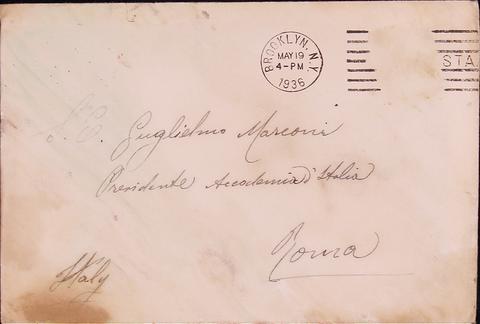 BROOKLYN, N.Y.
MAY 19
4-PM
1936
STA
Guglielmo Marconi
Presidente Accademia d'Italia
Roma
Italy